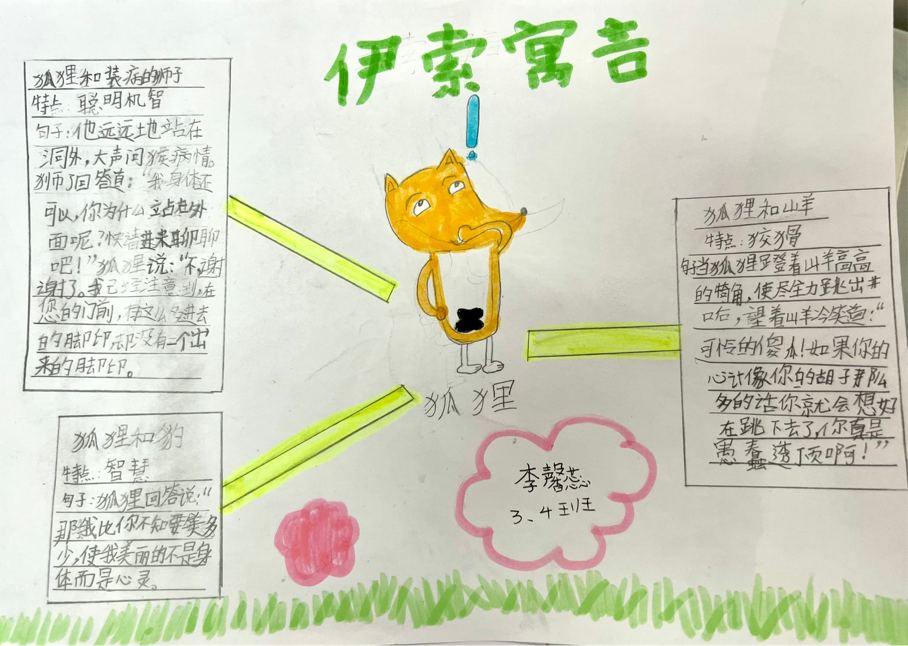 伊索寓言
!
狐狸和装病的狮子
特点:聪明机智
句子:他远远地站在
洞外,大声问候病情。
狮子回答道:“我身体还
可以,你为什么站在外
面呢?快请进来聊聊
吧!”狐狸说:“不,谢
谢了。我已经注意到,在
您的门前,有这么多进去
的脚印,却没有一个出
来的脚印。
狐狸和山羊
特点:狡猾
句子当狐狸蹬着山羊高高
的犄角,使尽全力跳出井
口后,望着山羊冷笑道:“
可怜的傻瓜!如果你的
心计像你的胡子那么
多的话你就会想好
在跳下去了,你真是
愚蠢透顶啊!”
狐狸
狐狸和豹
特点:智慧
句子:狐狸回答说,“
那我比你不知要美多
少,使我美丽的不是身
体而是心灵。
李馨蕊
3、4班